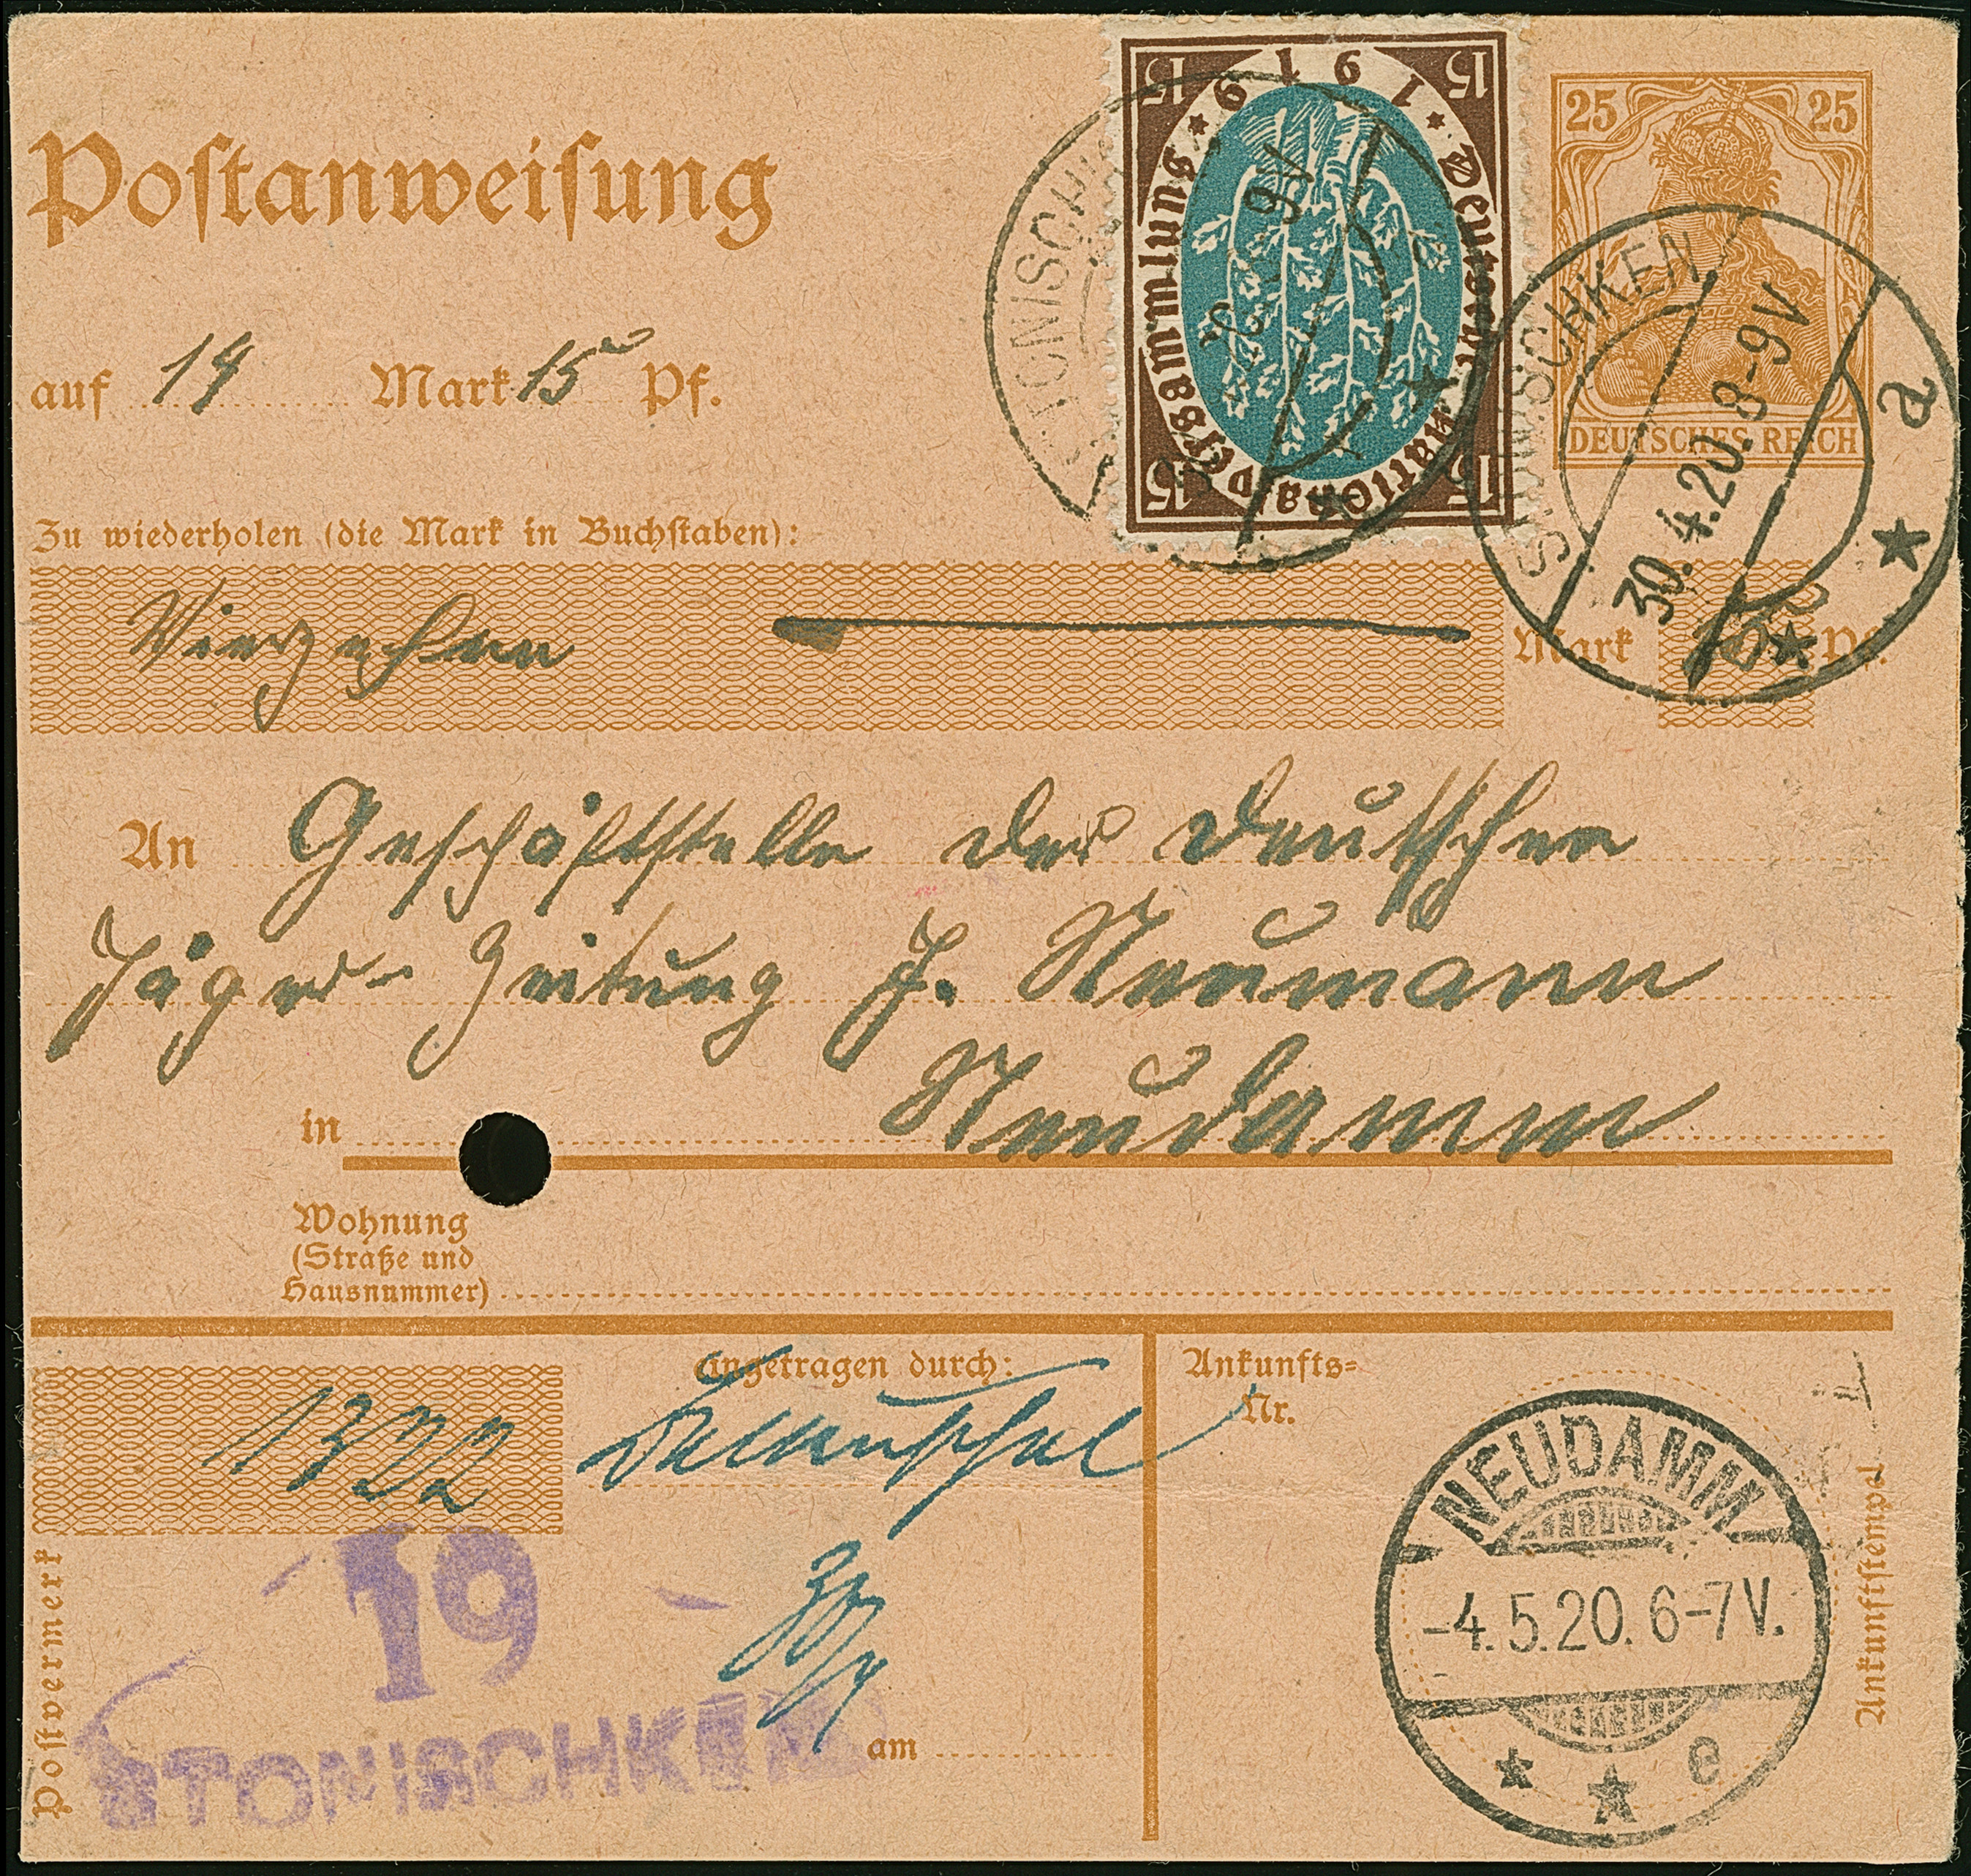 Postanweisung
auf 14 Mark 15 Pf.
15 15
1919 * Deutsche Nationalversammlung *
15 15
9V
25 25
DEUTSCHES REICH
30.4.20.8-9V
a
Zu wiederholen (die Mark in Buchstaben):
Vierzehn Mark Pf.
An Geschäftstelle der Deutschen
Jäger-Zeitung J. Neumann
in Neudamm
Wohnung
(Straße und
Hausnummer)
Postvermerk
1322
angetragen durch:
19
STONISCHKEN
am
Ankunfts=
Nr.
NEUDAMM
-4.5.20.6-7V.
* * e
Ankunftstempel